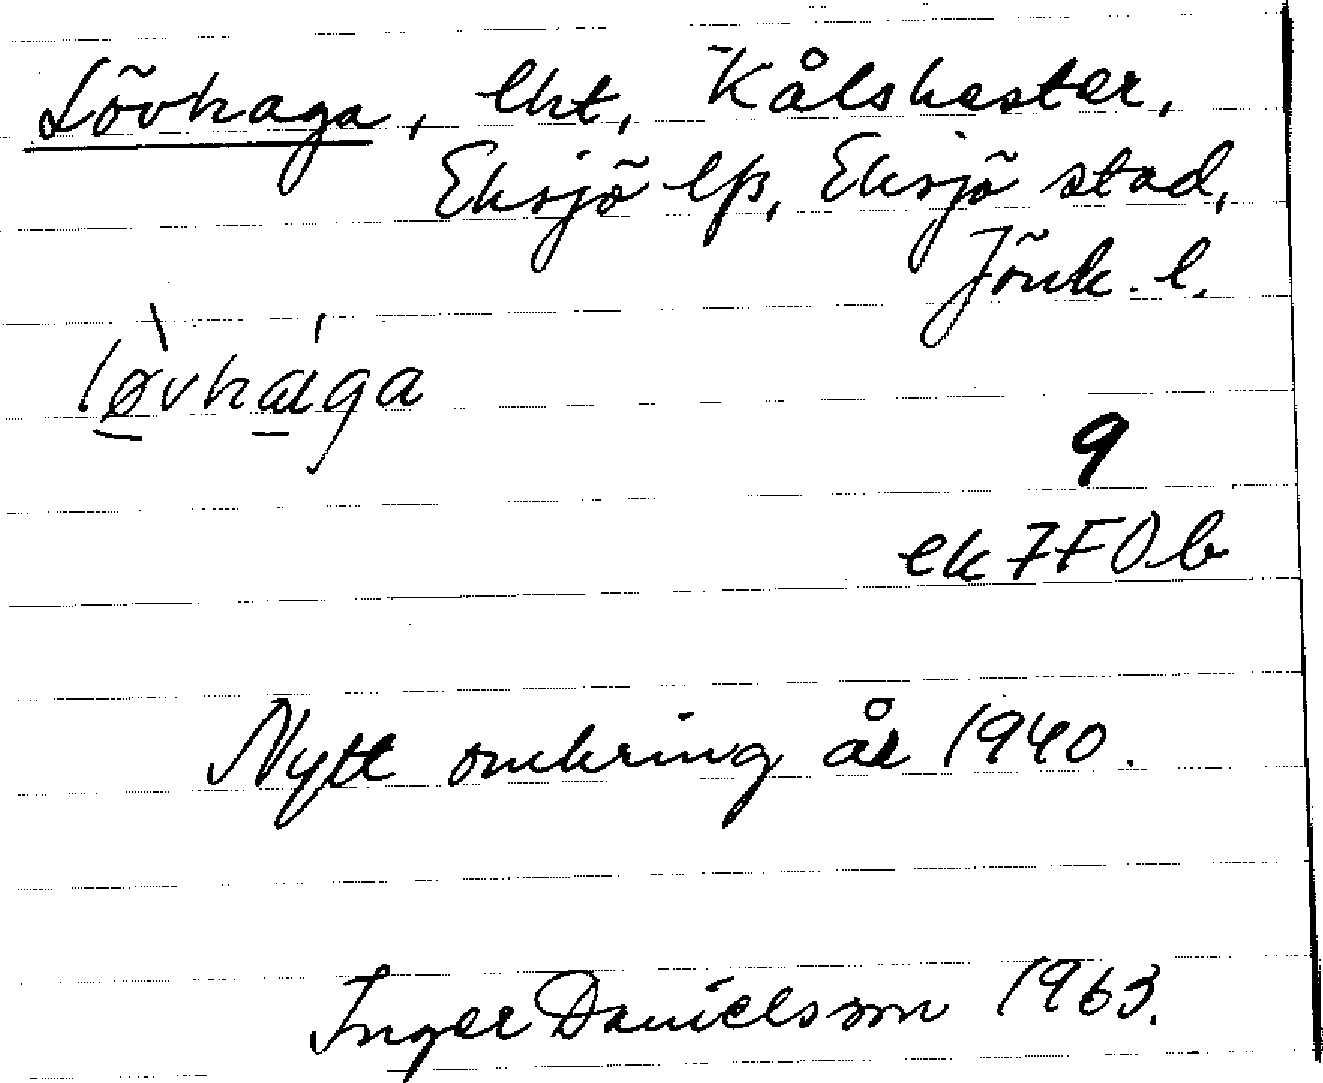 Lövhaga, lht, Kålshester,
Eksjö lfs, Eksjö stad,
Jönk. l.
lø̀vhága
9
ek 7F0b
Nytt omkring år 1940.
Inger Danielsson 1963.